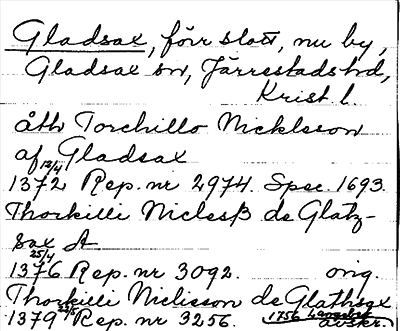 Gladsax, förr slott, nu by,
Gladsax sn, Järrestads hd,
Krist. l.
åth Torchillo Nicklsson
af Gladsax
12/4
1372 Rep. nr 2974. Spec. 1693.
Thorkilli Niclesß de Glatz-
sax A
25/4
1376 Rep. nr 3092. orig.
Thorkilli Niclisson de Glathsax
1379 Rep. nr 3256. 1756 avskr.